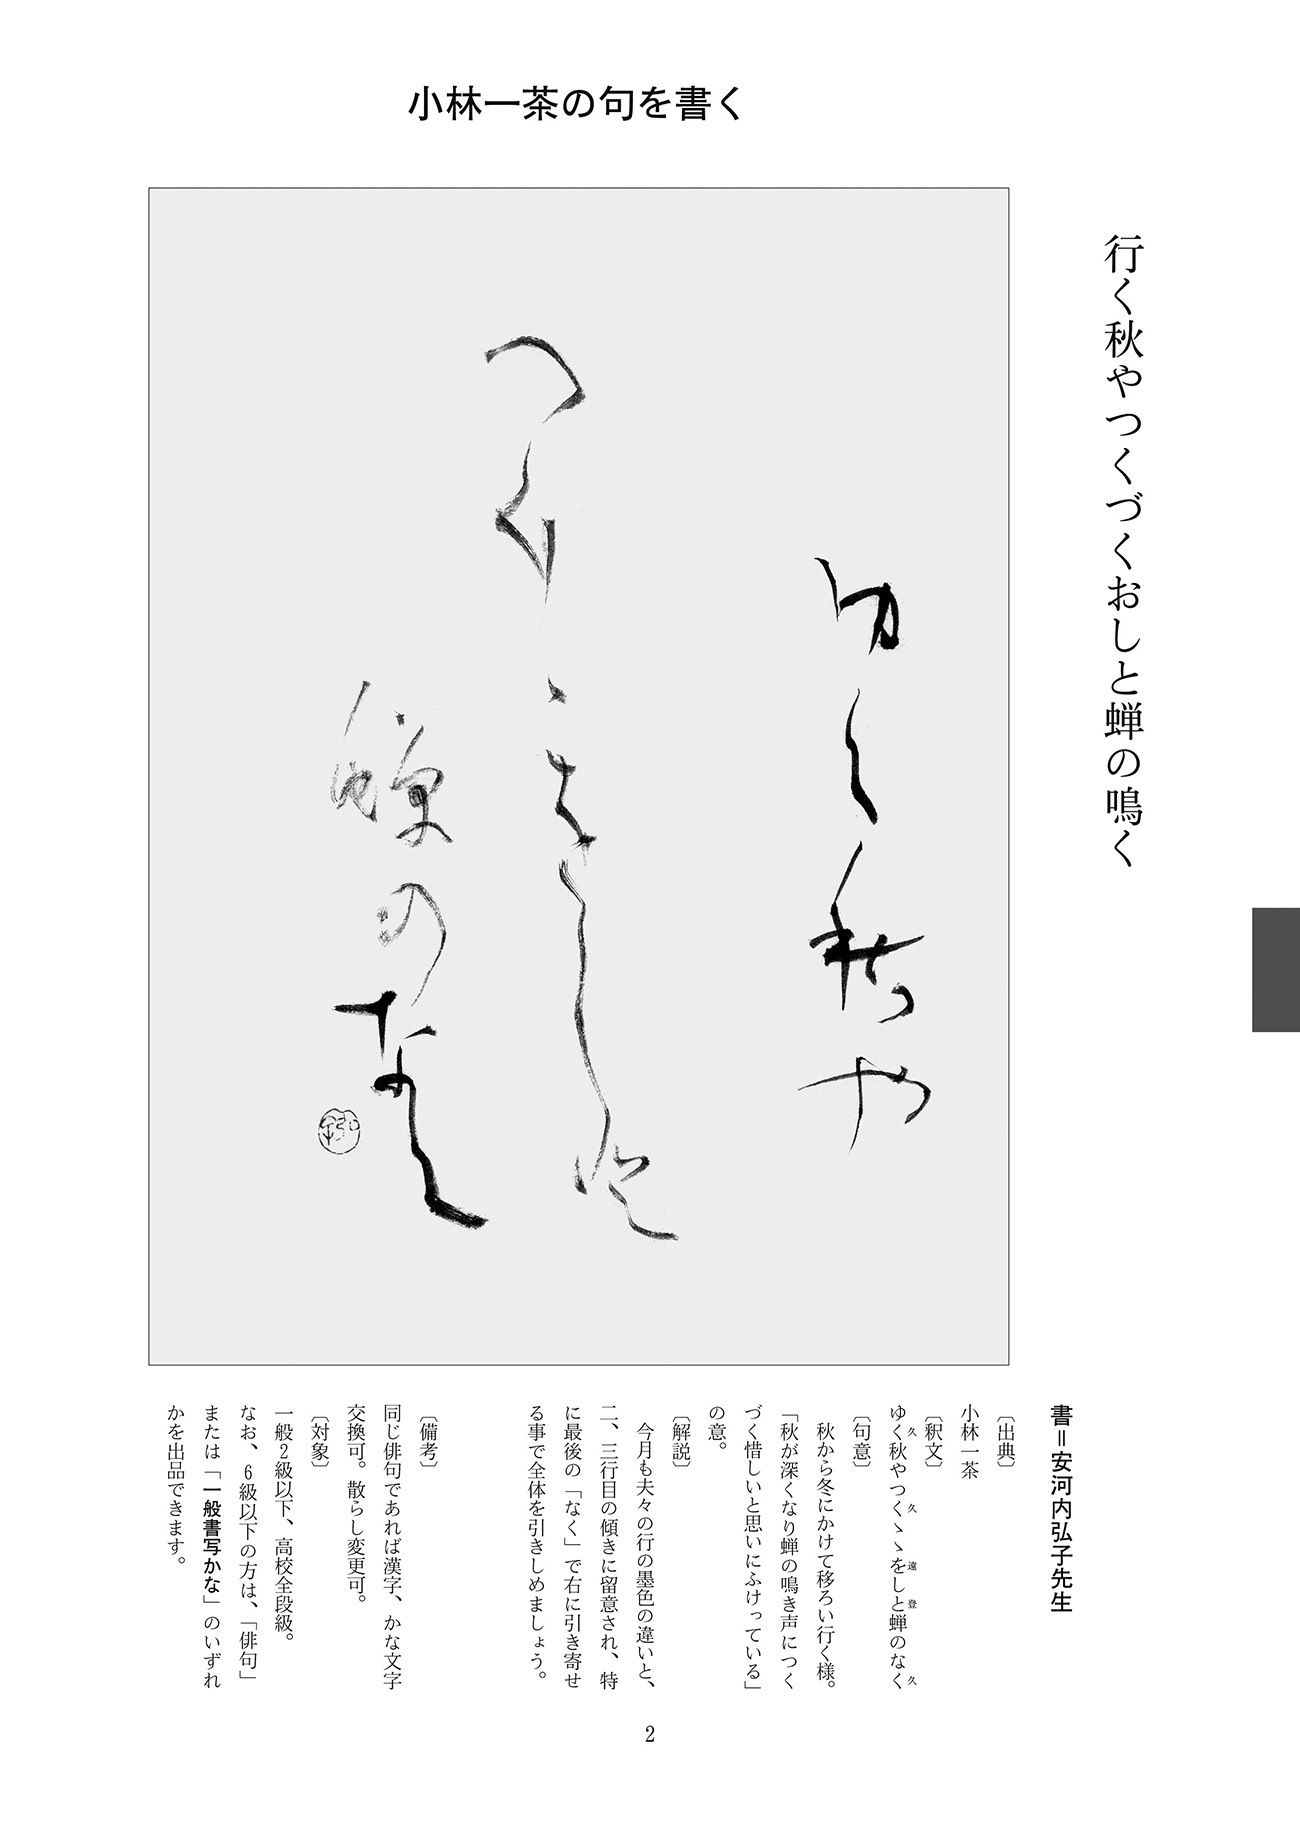 小林一茶の句を書く
行く秋やつくづくおしと蝉の鳴く
ゆく秋や
つくゝゝをしと
蝉のなく
書=安河内弘子先生
〔出典〕
小林一茶
〔釈文〕
ゆく秋やつくゝゝをしと蝉のなく
久 久 遠 登 久
〔句意〕
秋から冬にかけて移ろい行く様。
「秋が深くなり蝉の鳴き声につく
づく惜しいと思いにふけっている」
の意。
〔解説〕
今月も夫々の行の墨色の違いと、
二、三行目の傾きに留意され、特
に最後の「なく」で右に引き寄せ
る事で全体を引きしめましょう。
〔備考〕
同じ俳句であれば漢字、かな文字
交換可。散らし変更可。
〔対象〕
一般2級以下、高校全段級。
なお、6級以下の方は、「俳句」
または「一般書写かな」のいずれ
かを出品できます。
2